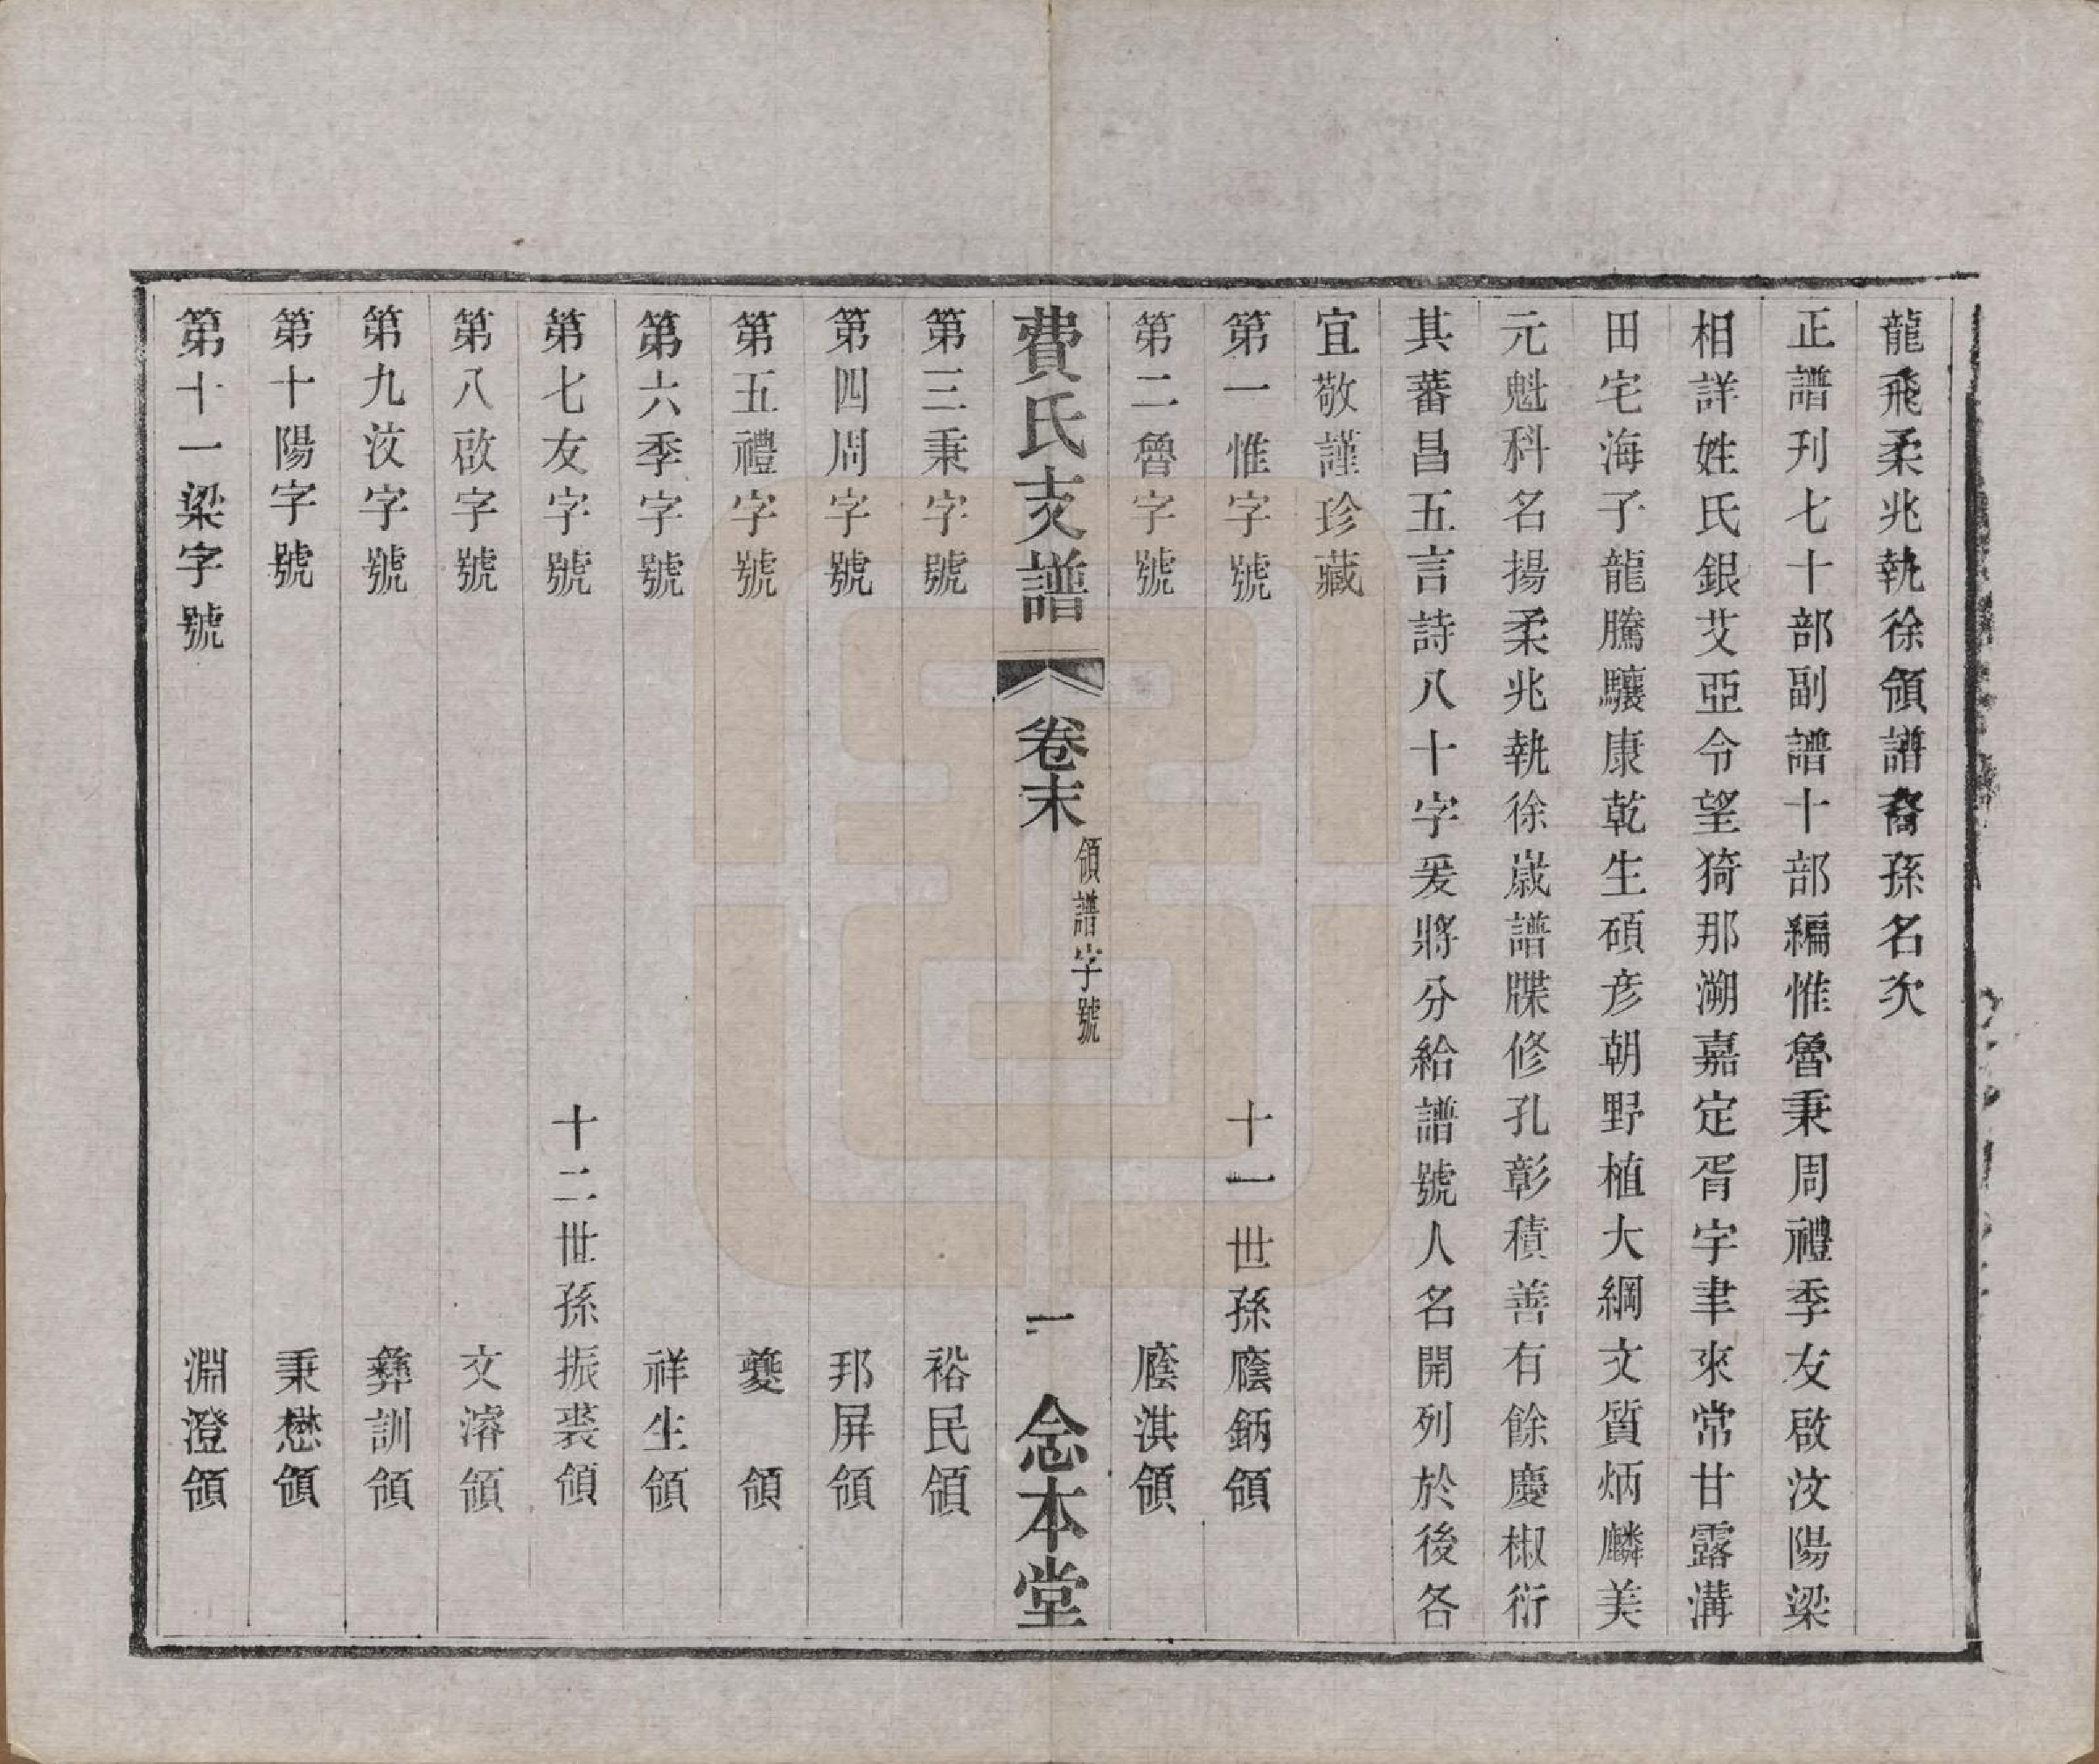 龍飛柔兆執徐領譜裔孫名次
正譜刋七十部副譜十部編惟魯秉周禮季友啟汶陽梁
相詳姓氏銀艾亞令望猗那溯嘉定胥宇聿來常甘露溝
田宅海子龍騰驤康乾生碩彥朝野植大綱文質炳麟美
元魁科名揚柔兆執徐歲譜牒修孔彰積善有餘慶椒衍
其蕃昌五言詩八十字爰將分給譜號人名開列於後各
宜敬謹珍藏
第一惟字號 十一世孫廕鈵領
第二魯字號 廕淇領
費氏支譜 卷末 領譜字號 一 念本堂
第三秉字號 裕民領
第四周字號 邦屏領
第五禮字號 夔 領
第六季字號 祥生領
第七友字號 十二世孫振裘領
第八啟字號 文溶領
第九汶字號 彝訓領
第十陽字號 秉懋領
第十一梁字號 淵澄領